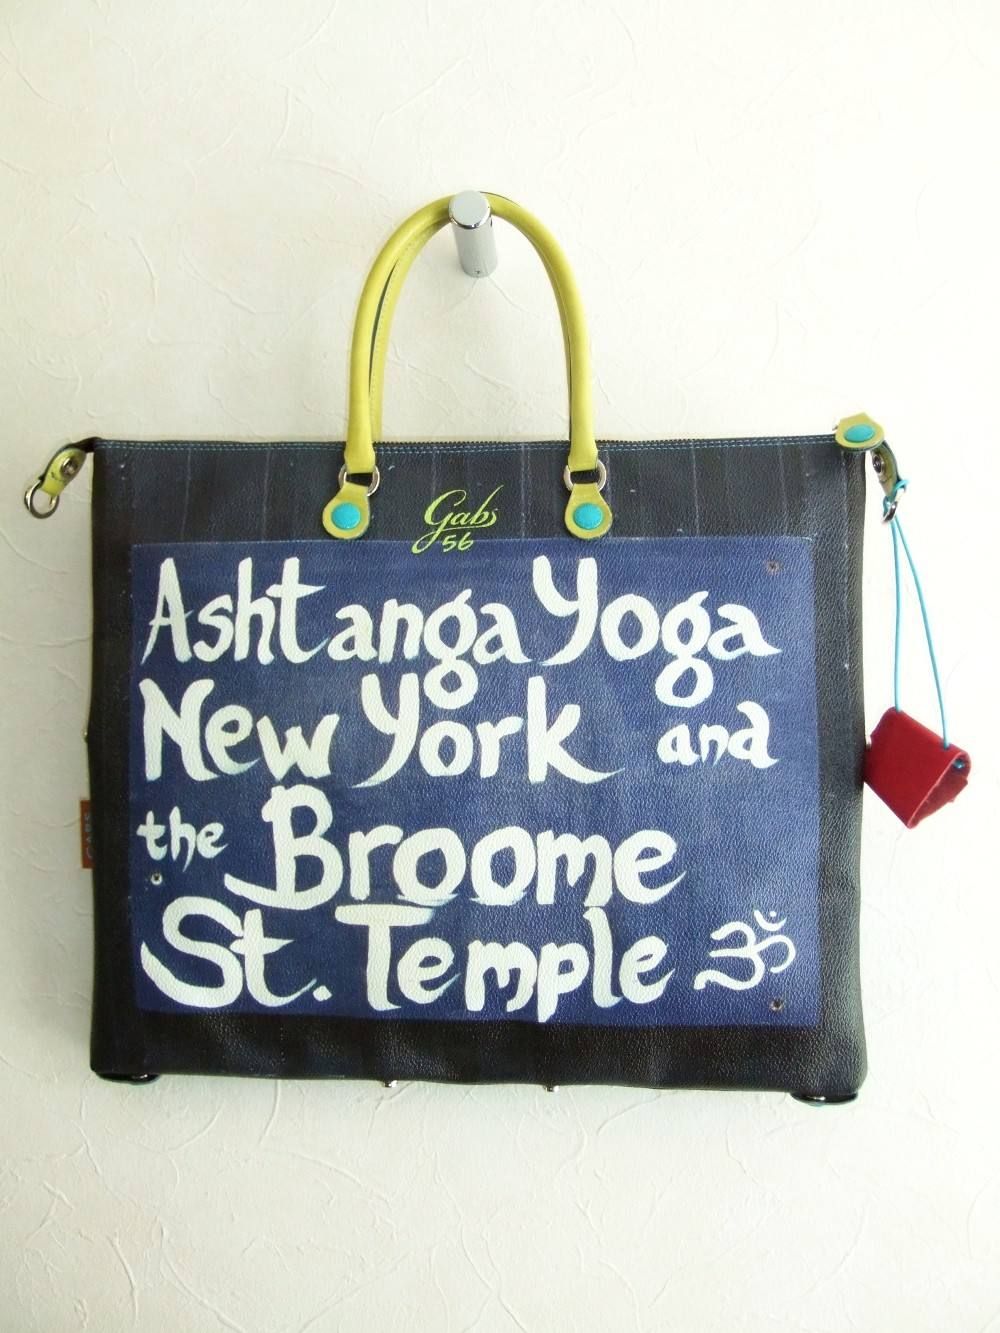 Gabs
56
Ashtanga Yoga
New York and
the Broome
St. Temple ॐ
GABS